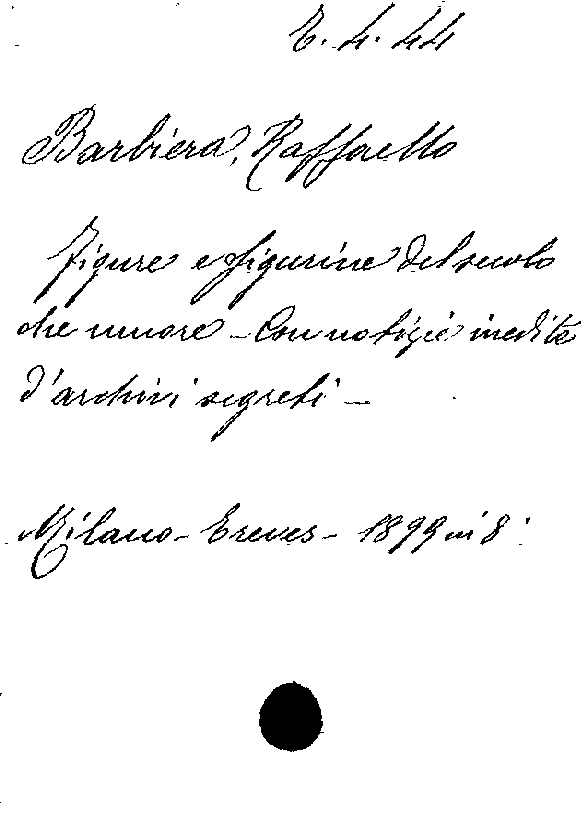 E. 4. 44
Barbiera, Raffaello
Figure e figurine del secolo
che muore - Con notizie inedite
d'archivi segreti -
Milano - Treves - 1899 in 8°